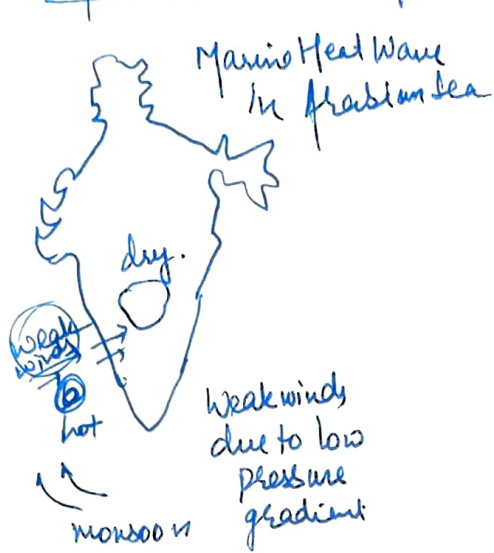 Marine Heat Wave
In Arabian Sea
dry.
weak
winds
hot
monsoon
Weak winds
due to low
pressure
gradient